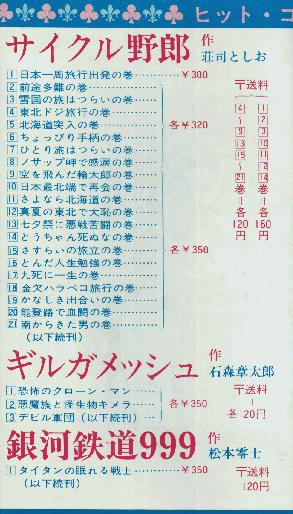 ヒット・コ
サイクル野郎 作 荘司としお
1 日本一周旅行出発の巻………¥300
2 前途多難の巻
3 雪国の旅はつらいの巻
4 東北ドジ旅行の巻
5 北海道突入の巻 各¥320
6 ちょっぴり手柄の巻
7 ひとり旅はつらいの巻
8 ノサップ岬で感涙の巻
9 空を飛んだ輪太郎の巻
10 日本最北端で再会の巻
11 さよなら北海道の巻
12 真夏の東北で大恥の巻
13 七夕祭に悪戦苦闘の巻
14 とうちゃん死ぬなの巻
15 さすらいの旅立の巻 各¥350
16 とんだ人生勉強の巻
17 九死に一生の巻
18 金欠ハラペコ旅行の巻
19 かなしき出合いの巻
20 能登路で血闘の巻
21 南からきた男の巻
(以下続刊)
〒送料
ギルガメッシュ 作 石森章太郎
1 恐怖のクローン・マン
2 悪魔族と怪生物キメラ 各¥350
3 デビル軍団(以下続刊)
〒送料
1〜3 各120円
銀河鉄道999 作 松本零士
1 タイタンの眠れる戦士………¥350
(以下続刊)
〒送料
120円